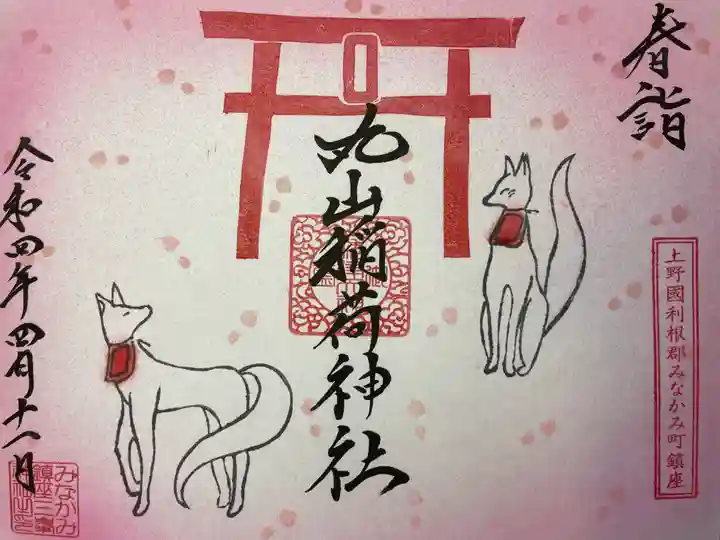 春詣
上野國利根郡みなかみ町鎮座
丸山稲荷神社
令和四年四月十一日
みなかみ